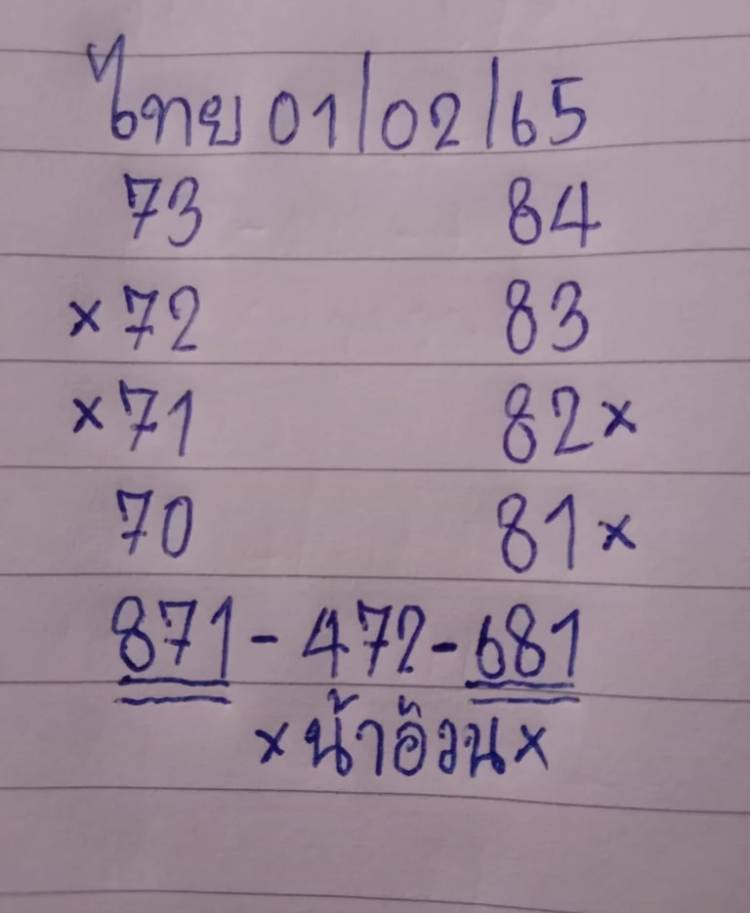 ไทย 01/02/65
73 84
×72 83
×71 82×
70 81×
871-472-681
×น้าอ้วน×